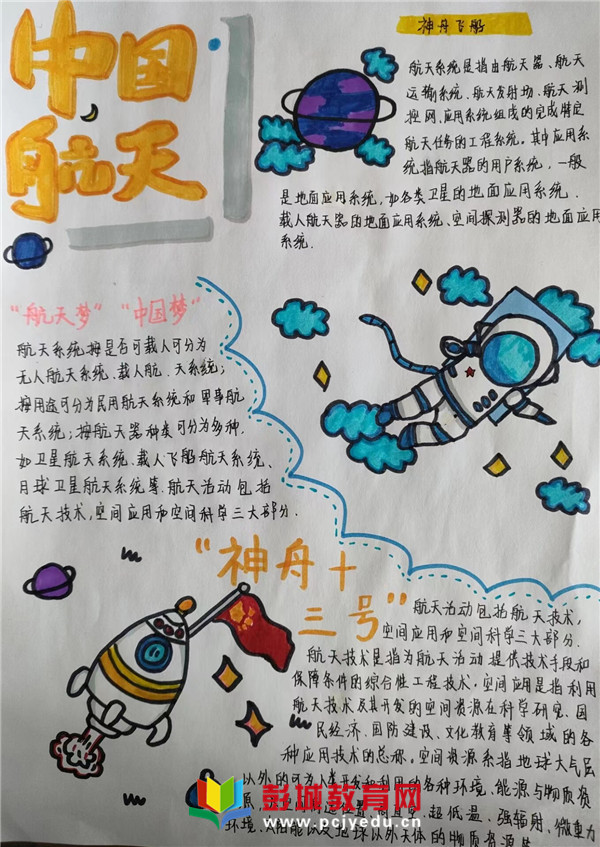 中国
航天
神舟飞船
航天系统是指由航天器、航天
运输系统、航天发射场、航天测
控网、应用系统组成的完成特定
航天任务的工程系统。其中应用系
统指航天器的用户系统，一般
是地面应用系统，如各类卫星的地面应用系统.
载人航天器的地面应用系统、空间探测器的地面应用
系统.
“航天梦”“中国梦”
航天系统按是否可载人可分为
无人航天系统、载人航、天系统；
按用途可分为民用航天系统和军事航
天系统；按航天器种类可分为多种.
如卫星航天系统、载人飞船航天系统、
月球卫星航天系统等.航天活动包括
航天技术，空间应用和空间科学三大部分.
“神舟十
三号”
航天活动包括航天技术，
空间应用和空间科学三大部分.
航天技术是指为航天活动提供技术手段和
保障条件的综合性工程技术.空间应用是指利用
航天技术及其开发的空间资源在科学研究、国
民经济、国防建设、文化教育等领域的各
种应用技术的总称。空间资源系指地球大气层
以外的可为人类开发和利用的各种环境、能源与物质资
源 超低温、强辐射、微重力
环境、太阳能以及地球以外天体的物质资源
彭城教育网
www.pcjyedu.cn